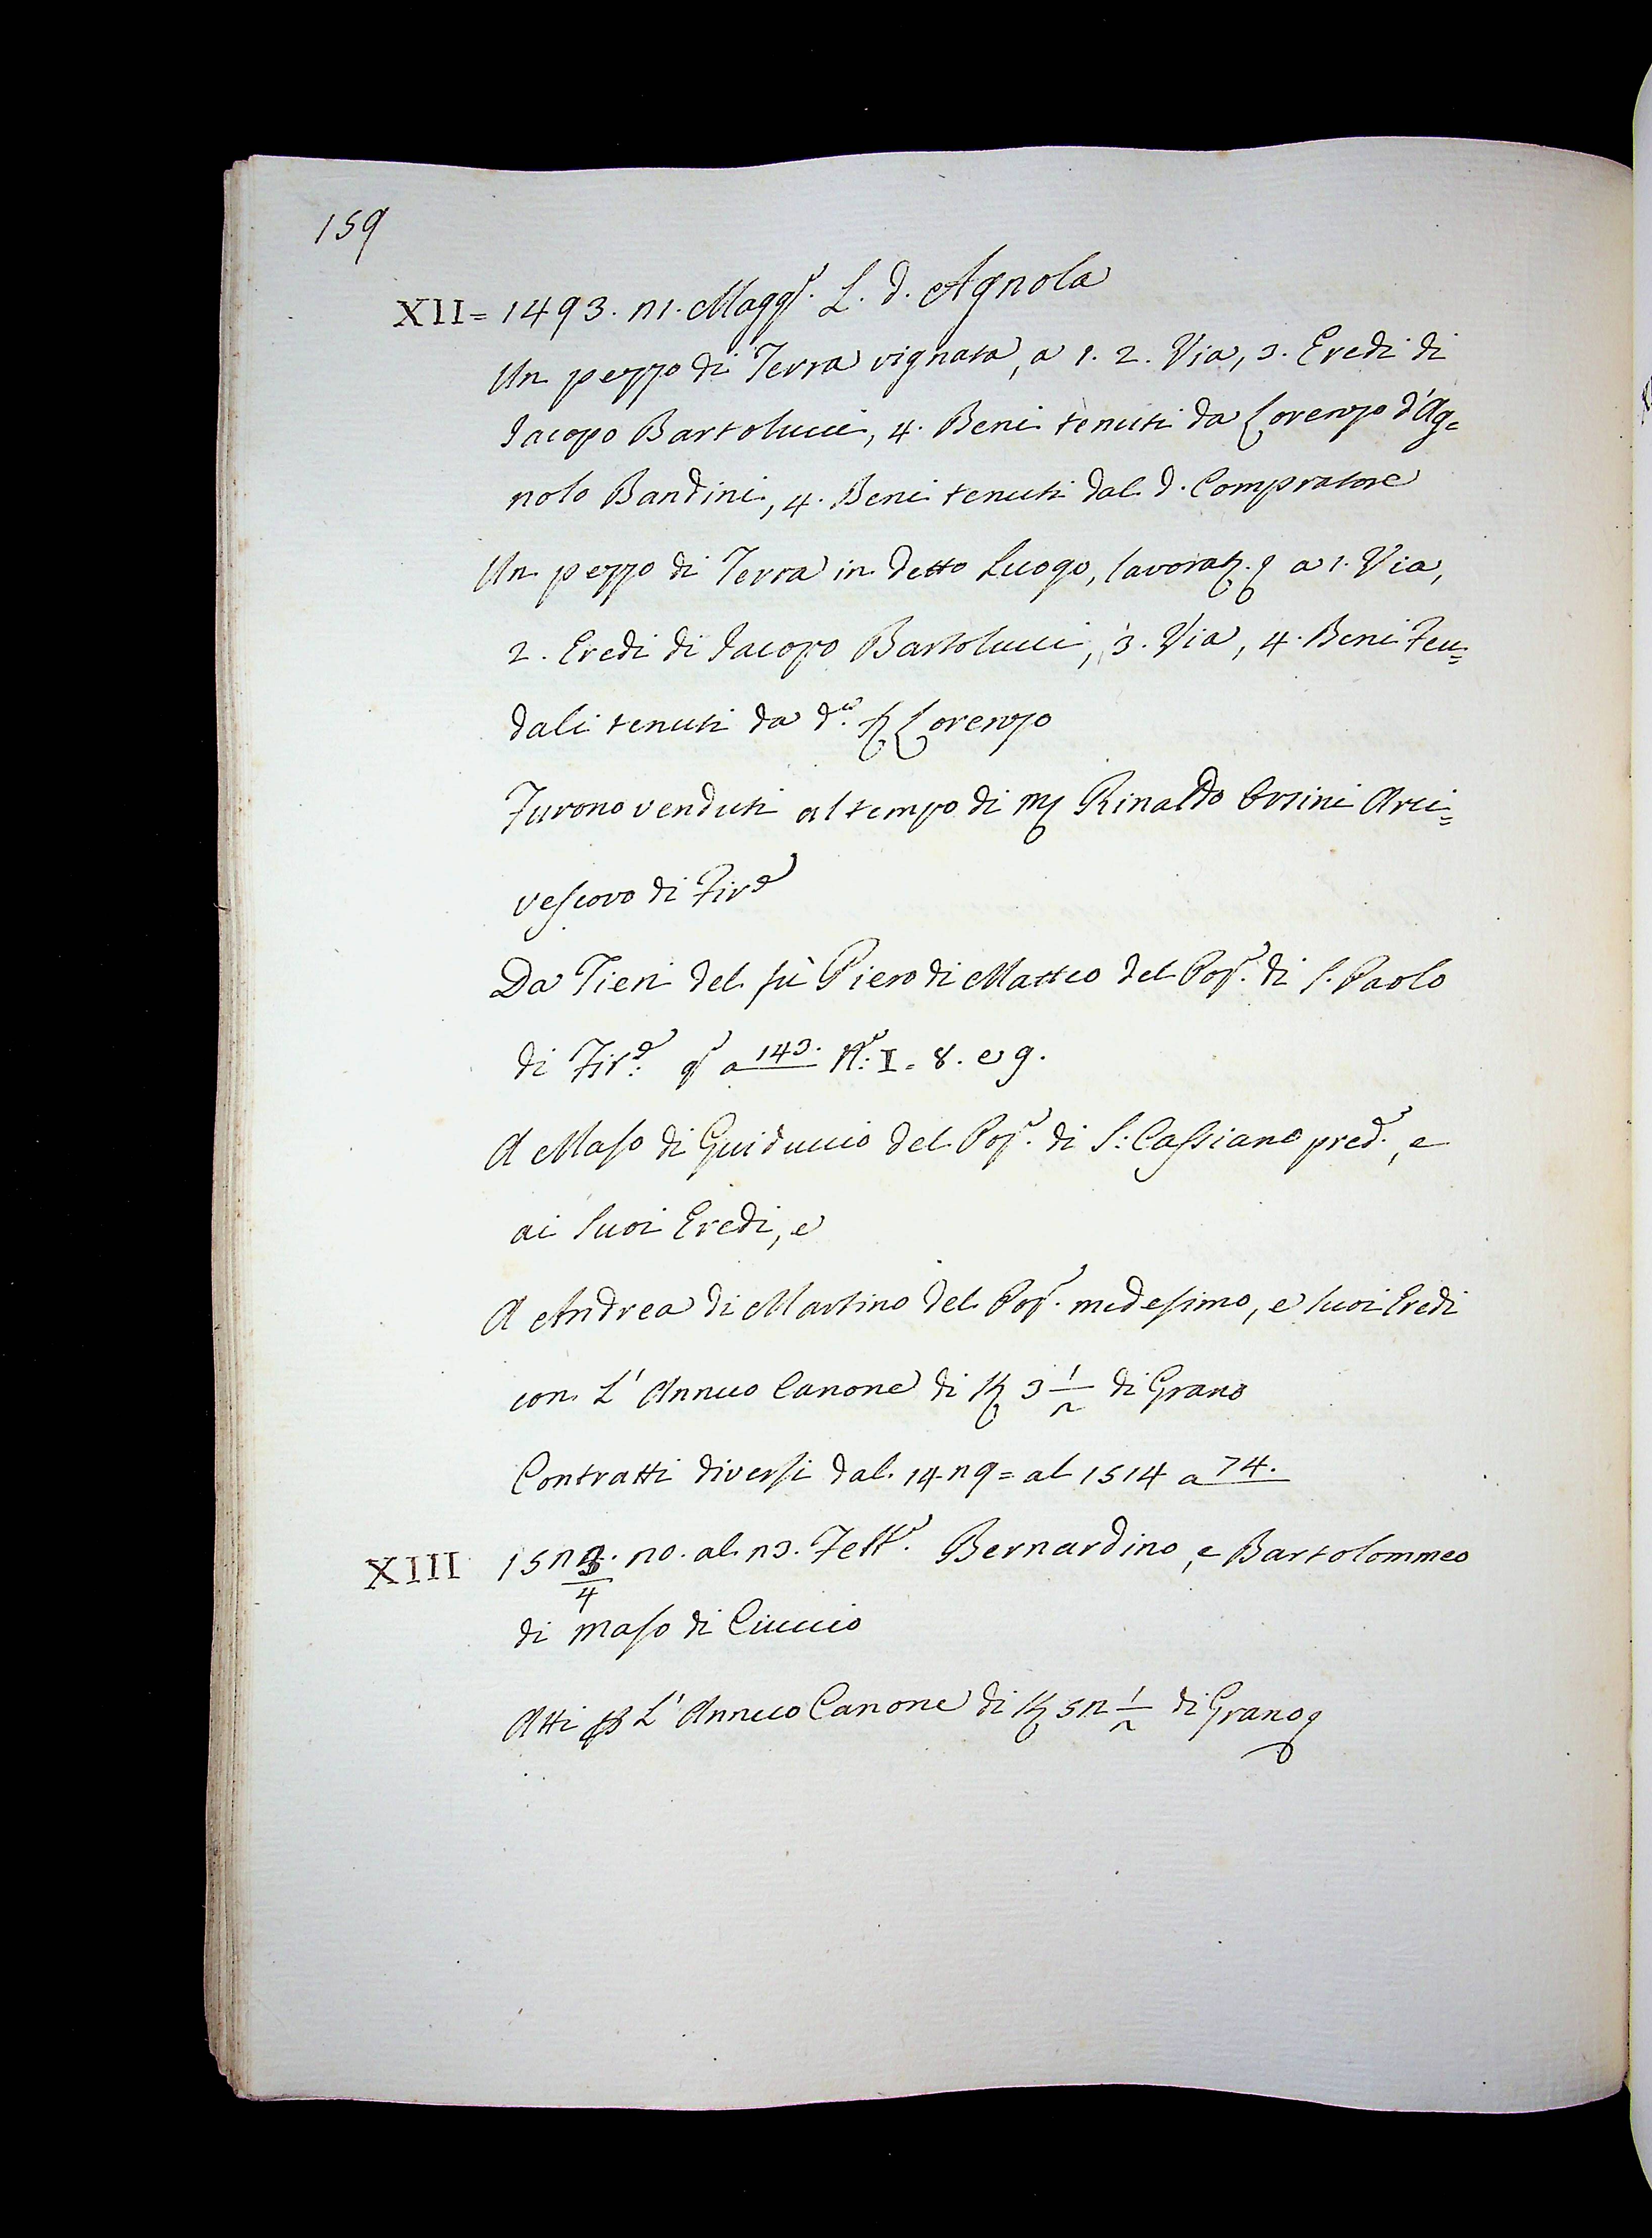 159
XII = 1493. 21. Magg.o L. d. Agnola
Un pezzo di Terra vignata, a 1. 2. Via, 3. Eredi di
Jacopo Bartolucci, 4. Beni tenuti da Lorenzo d'Ag=
nolo Bandini, 4. Beni tenuti dal d. Compratore
Un pezzo di Terra in detto Luogo, lavorat. a 1. Via,
2. Eredi di Jacopo Bartolucci, 3. Via, 4. Beni Feu=
dali tenuti da d.o Lorenzo
Furono venduti al tempo di M Rinaldo Orsini Arci=
vescovo di Fir.e
Da Tieri del fù Piero di Matteo del Pop.o di S. Paolo
di Fir.e a 143. N.o I = 8. e 9.
A Maso di Guiduccio del Pop.o di S. Cassiano pred.o, e
ai Suoi Eredi, e
A Andrea di Martino del Pop.o medesimo, e suoi Eredi
con L'Annuo Canone di 3 1/2 di Grano
Contratti diversi dal 1429 = al 1514 a 74.
XIII 1523/4. 20. al 23. Feb.o Bernardino, e Bartolommeo
di Maso di Ciuccio
Atti L'Annuo Canone di 52 1/2 di Grano